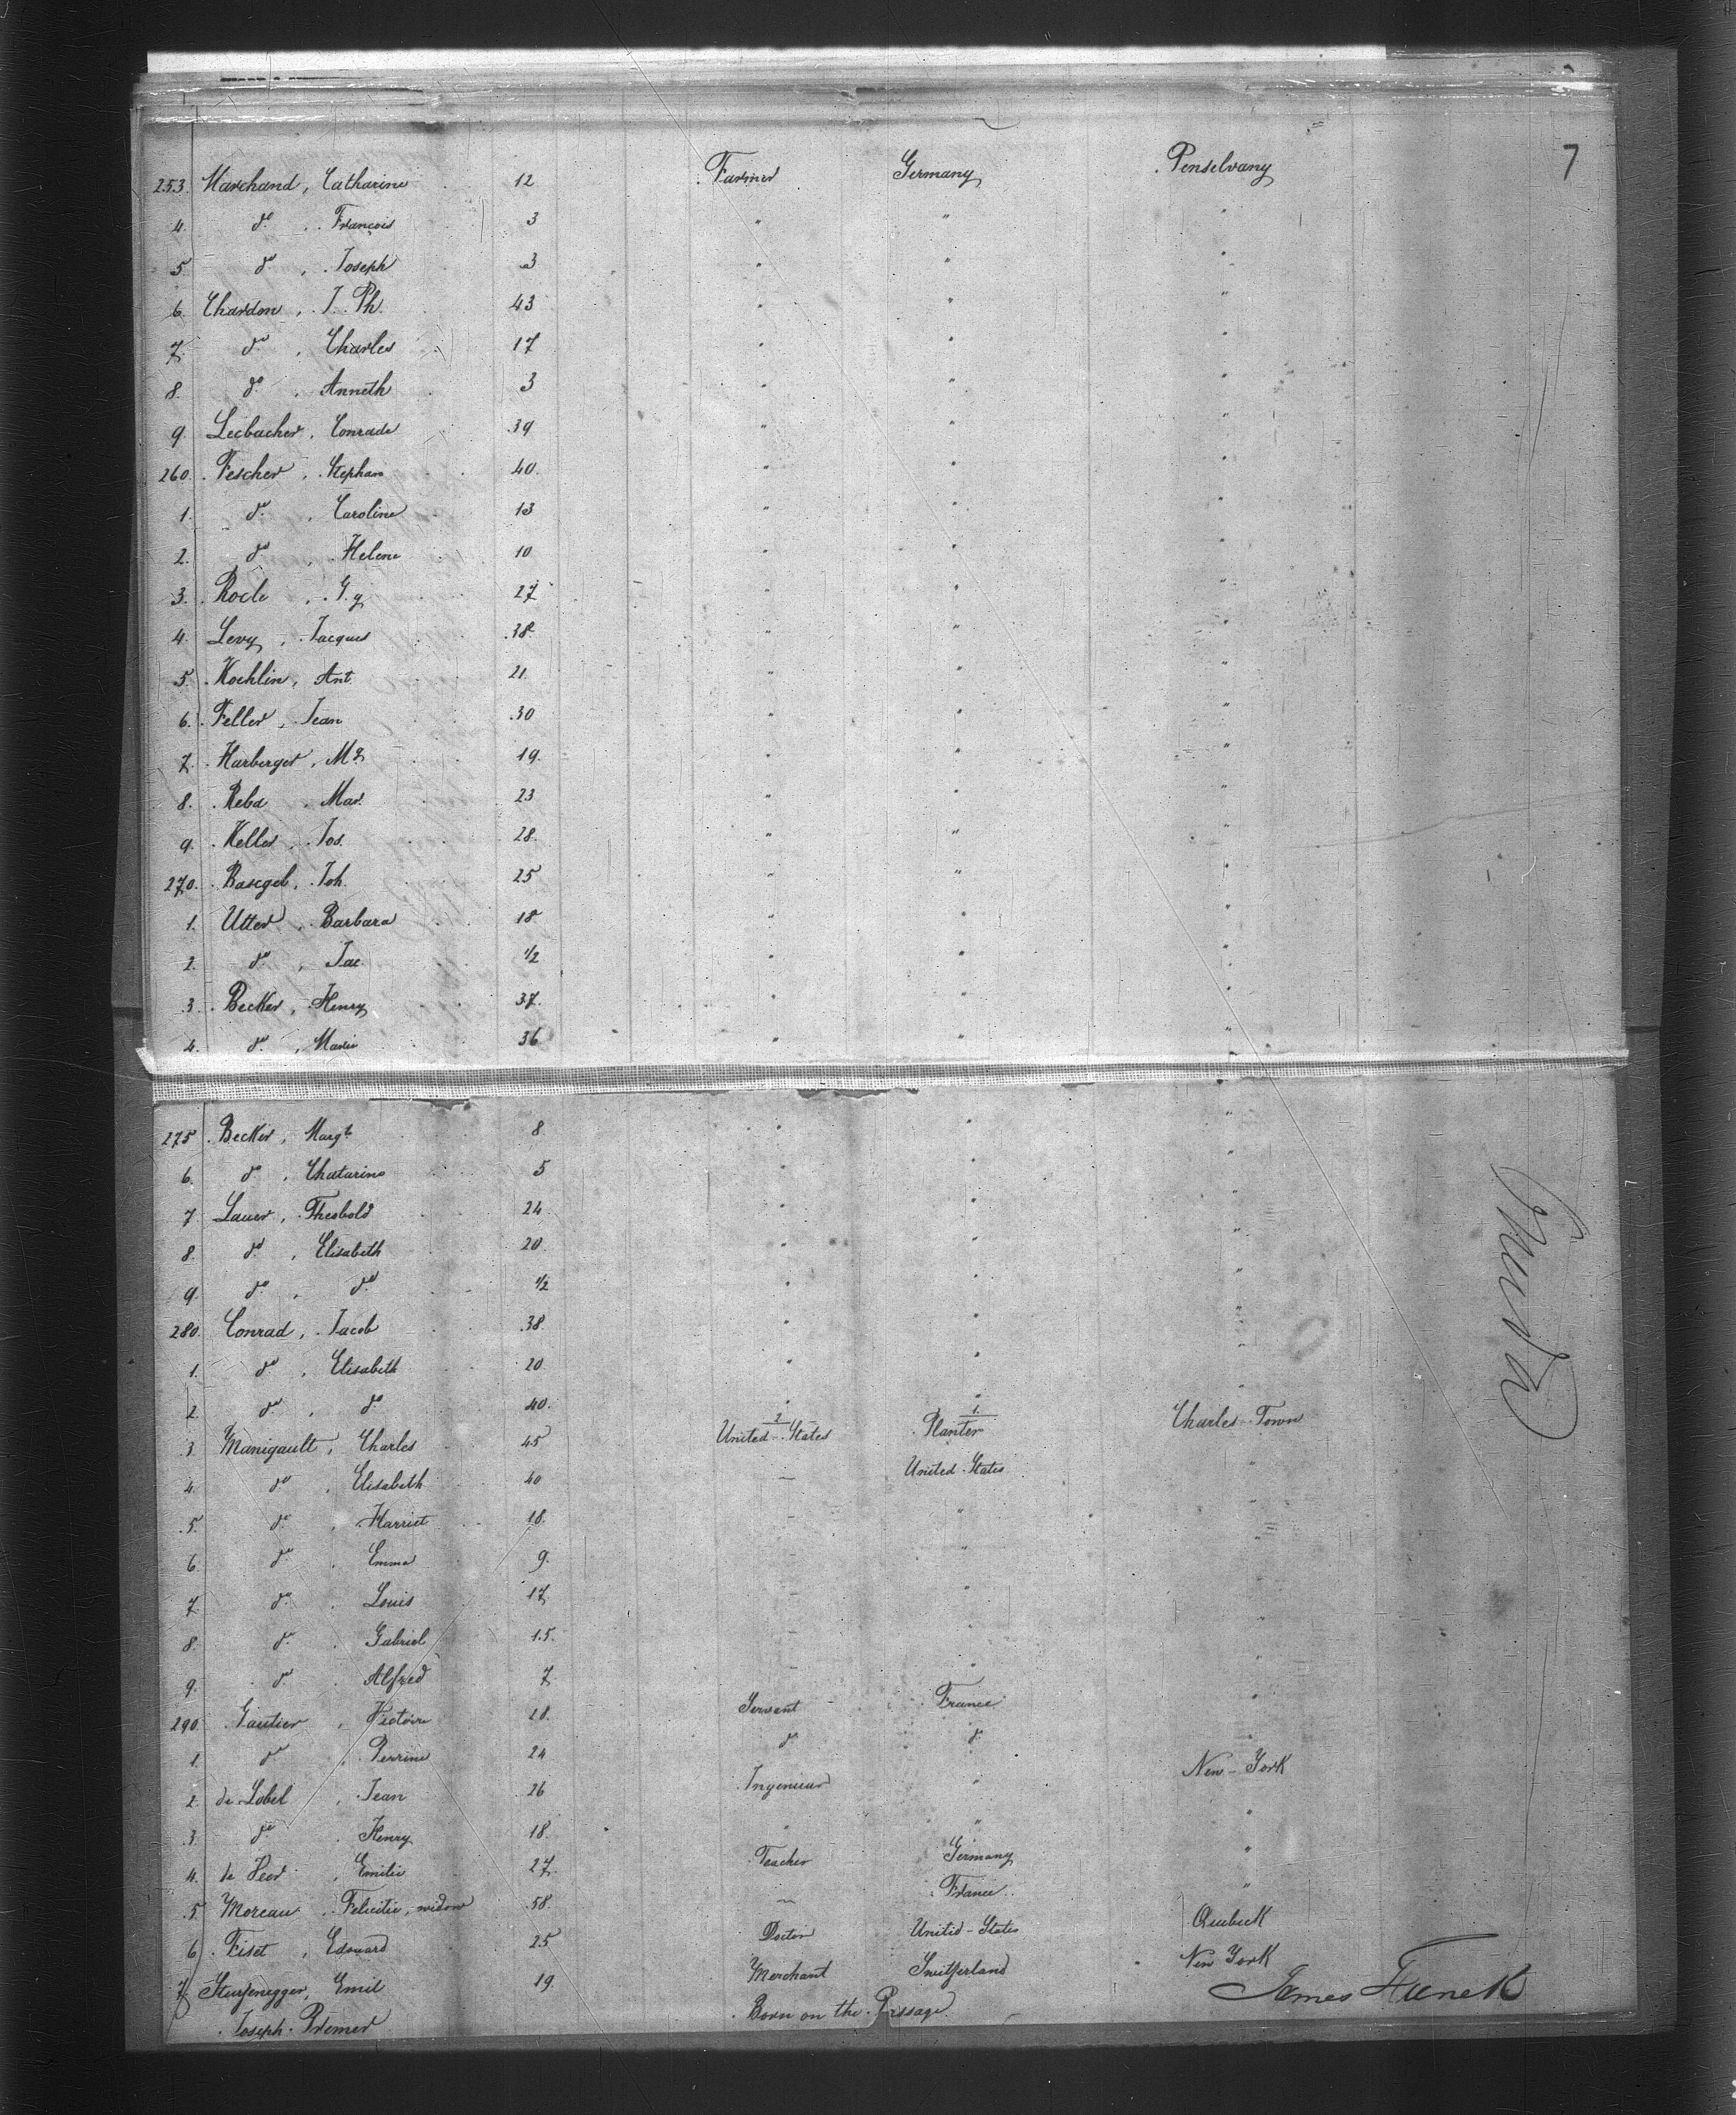 7
253. Marchand, Catharine 12 Farmer Germany Penselvany
4. do , François 3 " " "
5. do , Joseph 3 " " "
6. Chardon, J. Ph. 43 " " "
7. do , Charles 17 " " "
8. do , Anneth 3 " " "
9. Lecbacher, Conrade 39 " " "
260. Fescher, Stephan 40. " " "
1. do , Caroline 13 " " "
2. do , Helene 10 " " "
3. Rocle , G.g 27 " " "
4. Levy, Jacques 38. " " "
5. Kochlin, Ant. 21. " " "
6. Feller, Jean 30 " " "
7. Harberger, 19. " " "
8. Reba , Mar. 23 " " "
9. Keller, Jos. 28. " " "
270. Basegel, Joh. 25 " " "
1. Utter, Barbara 18 " " "
2. do , Jac. 1/2 " " "
3. Becker, Henry 37. " " "
4. do , Marie 36 " " "
275. Becker, Margt. 8 " " "
6. do , Chatarine 5 " " "
7. Lauer, Theobold 24. " " "
8. do , Elisabeth 20. " " "
9. do , do 1/2 " " "
280. Conrad, Jacob 38. " " "
1. do , Elisabeth 20. " " "
2. do , do 40. " " "
3. Manigault, Charles 45 2 United-States 1. Planter Charles-Town
4. do , Elisabeth 40 — United-States "
5. do , Harriet 18. — " "
6. do , Emma 9. " "
7. do , Louis 17 — " "
8. do , Gabriel 15. — "
9. do , Alfred 7. — " "
290. Gautier, Victoire 28. Servant France "
1. do , Perrine 24 do do "
2. de Lobel, Jean 26 Ingenieur " New-York
3. do , Henry 18. " " "
4. de Heer, Emilie 27. Teacher Germany "
5. Moreau, Felicitie, widow 58. — France. "
6. Fiset, Edouard 25 Doctor United-States Quebeck
7. Sturzenegger, Emil 19. Merchant Switzerland New York
Joseph Premer Born on the Passage.
James Funck